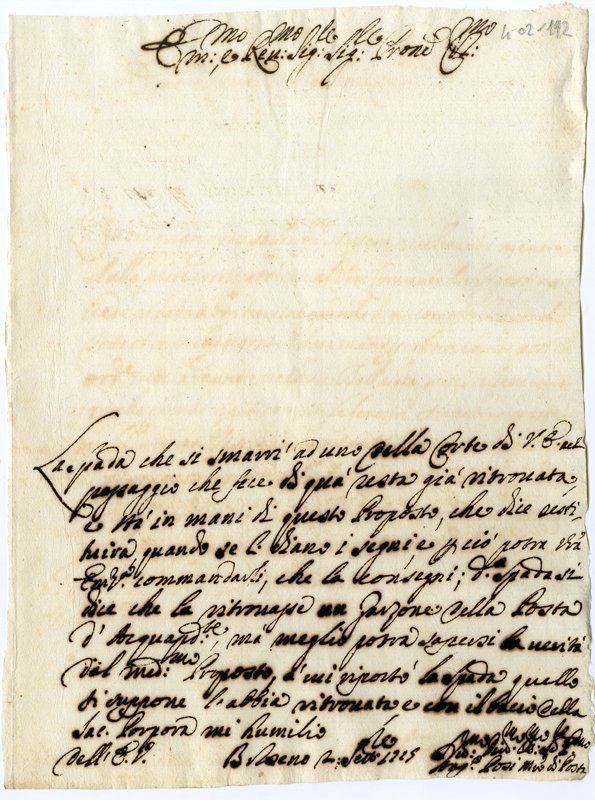 4-02-192
Em:mo e Reu:mo Sig:le Sig:le Prone Col:mo
La spada che si smarrì ad uno della Corte di V. E. nel
passaggio che fece di quà resta già ritrouata,
e stà in mani di questo Proposto, che dice resti-
tuirà, quando se li diano i segni, e p ciò potrà vrã
Em.za commandarli, che la consegni; d.a spada si
dice che la ritrouasse un Garzone della Posta
d' Acquapd.te, mà meglio potrà sapersi la uerità
dal med:mo Proposto, à cui riportò la spada quello
si suppone l'abbia ritrouata e con il bacio della
Sac. Porpora mi humilio
dell' E. V. Bolseno 2 Sett.e 1715
Posi Mro di Posta